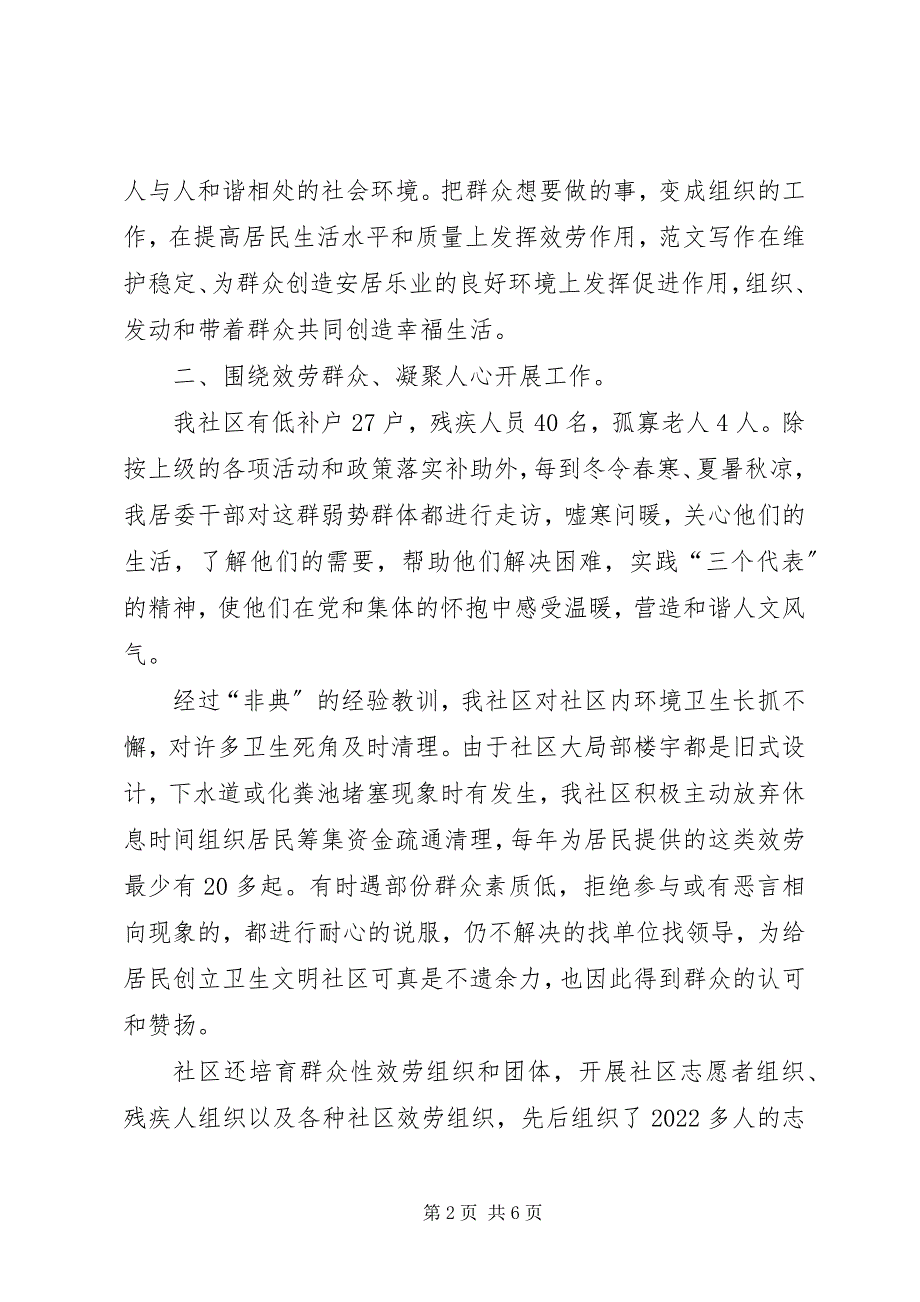 人与人和谐相处的社会环境。把群众想要做的事，变成组织的工
作，在提高居民生活水平和质量上发挥效劳作用，范文写作在维
护稳定、为群众创造安居乐业的良好环境上发挥促进作用，组织、
发动和带着群众共同创造幸福生活。
二、围绕效劳群众、凝聚人心开展工作。
我社区有低补户 27 户，残疾人员 40 名，孤寡老人 4 人。除
按上级的各项活动和政策落实补助外，每到冬令春寒、夏暑秋凉，
我居委干部对这群弱势群体都进行走访，嘘寒问暖，关心他们的
生活，了解他们的需要，帮助他们解决困难，实践“三个代表〞
的精神，使他们在党和集体的怀抱中感受温暖，营造和谐人文风
气。
经过“非典〞的经验教训，我社区对社区内环境卫生长抓不
懈，对许多卫生死角及时清理。由于社区大局部楼宇都是旧式设
计，下水道或化粪池堵塞现象时有发生，我社区积极主动放弃休
息时间组织居民筹集资金疏通清理，每年为居民提供的这类效劳
最少有 20 多起。有时遇部份群众素质低，拒绝参与或有恶言相
向现象的，都进行耐心的说服，仍不解决的找单位找领导，为给
居民创立卫生文明社区可真是不遗余力，也因此得到群众的认可
和赞扬。
社区还培育群众性效劳组织和团体，开展社区志愿者组织、
残疾人组织以及各种社区效劳组织，先后组织了 2022 多人的志
第 2 页 共 6 页